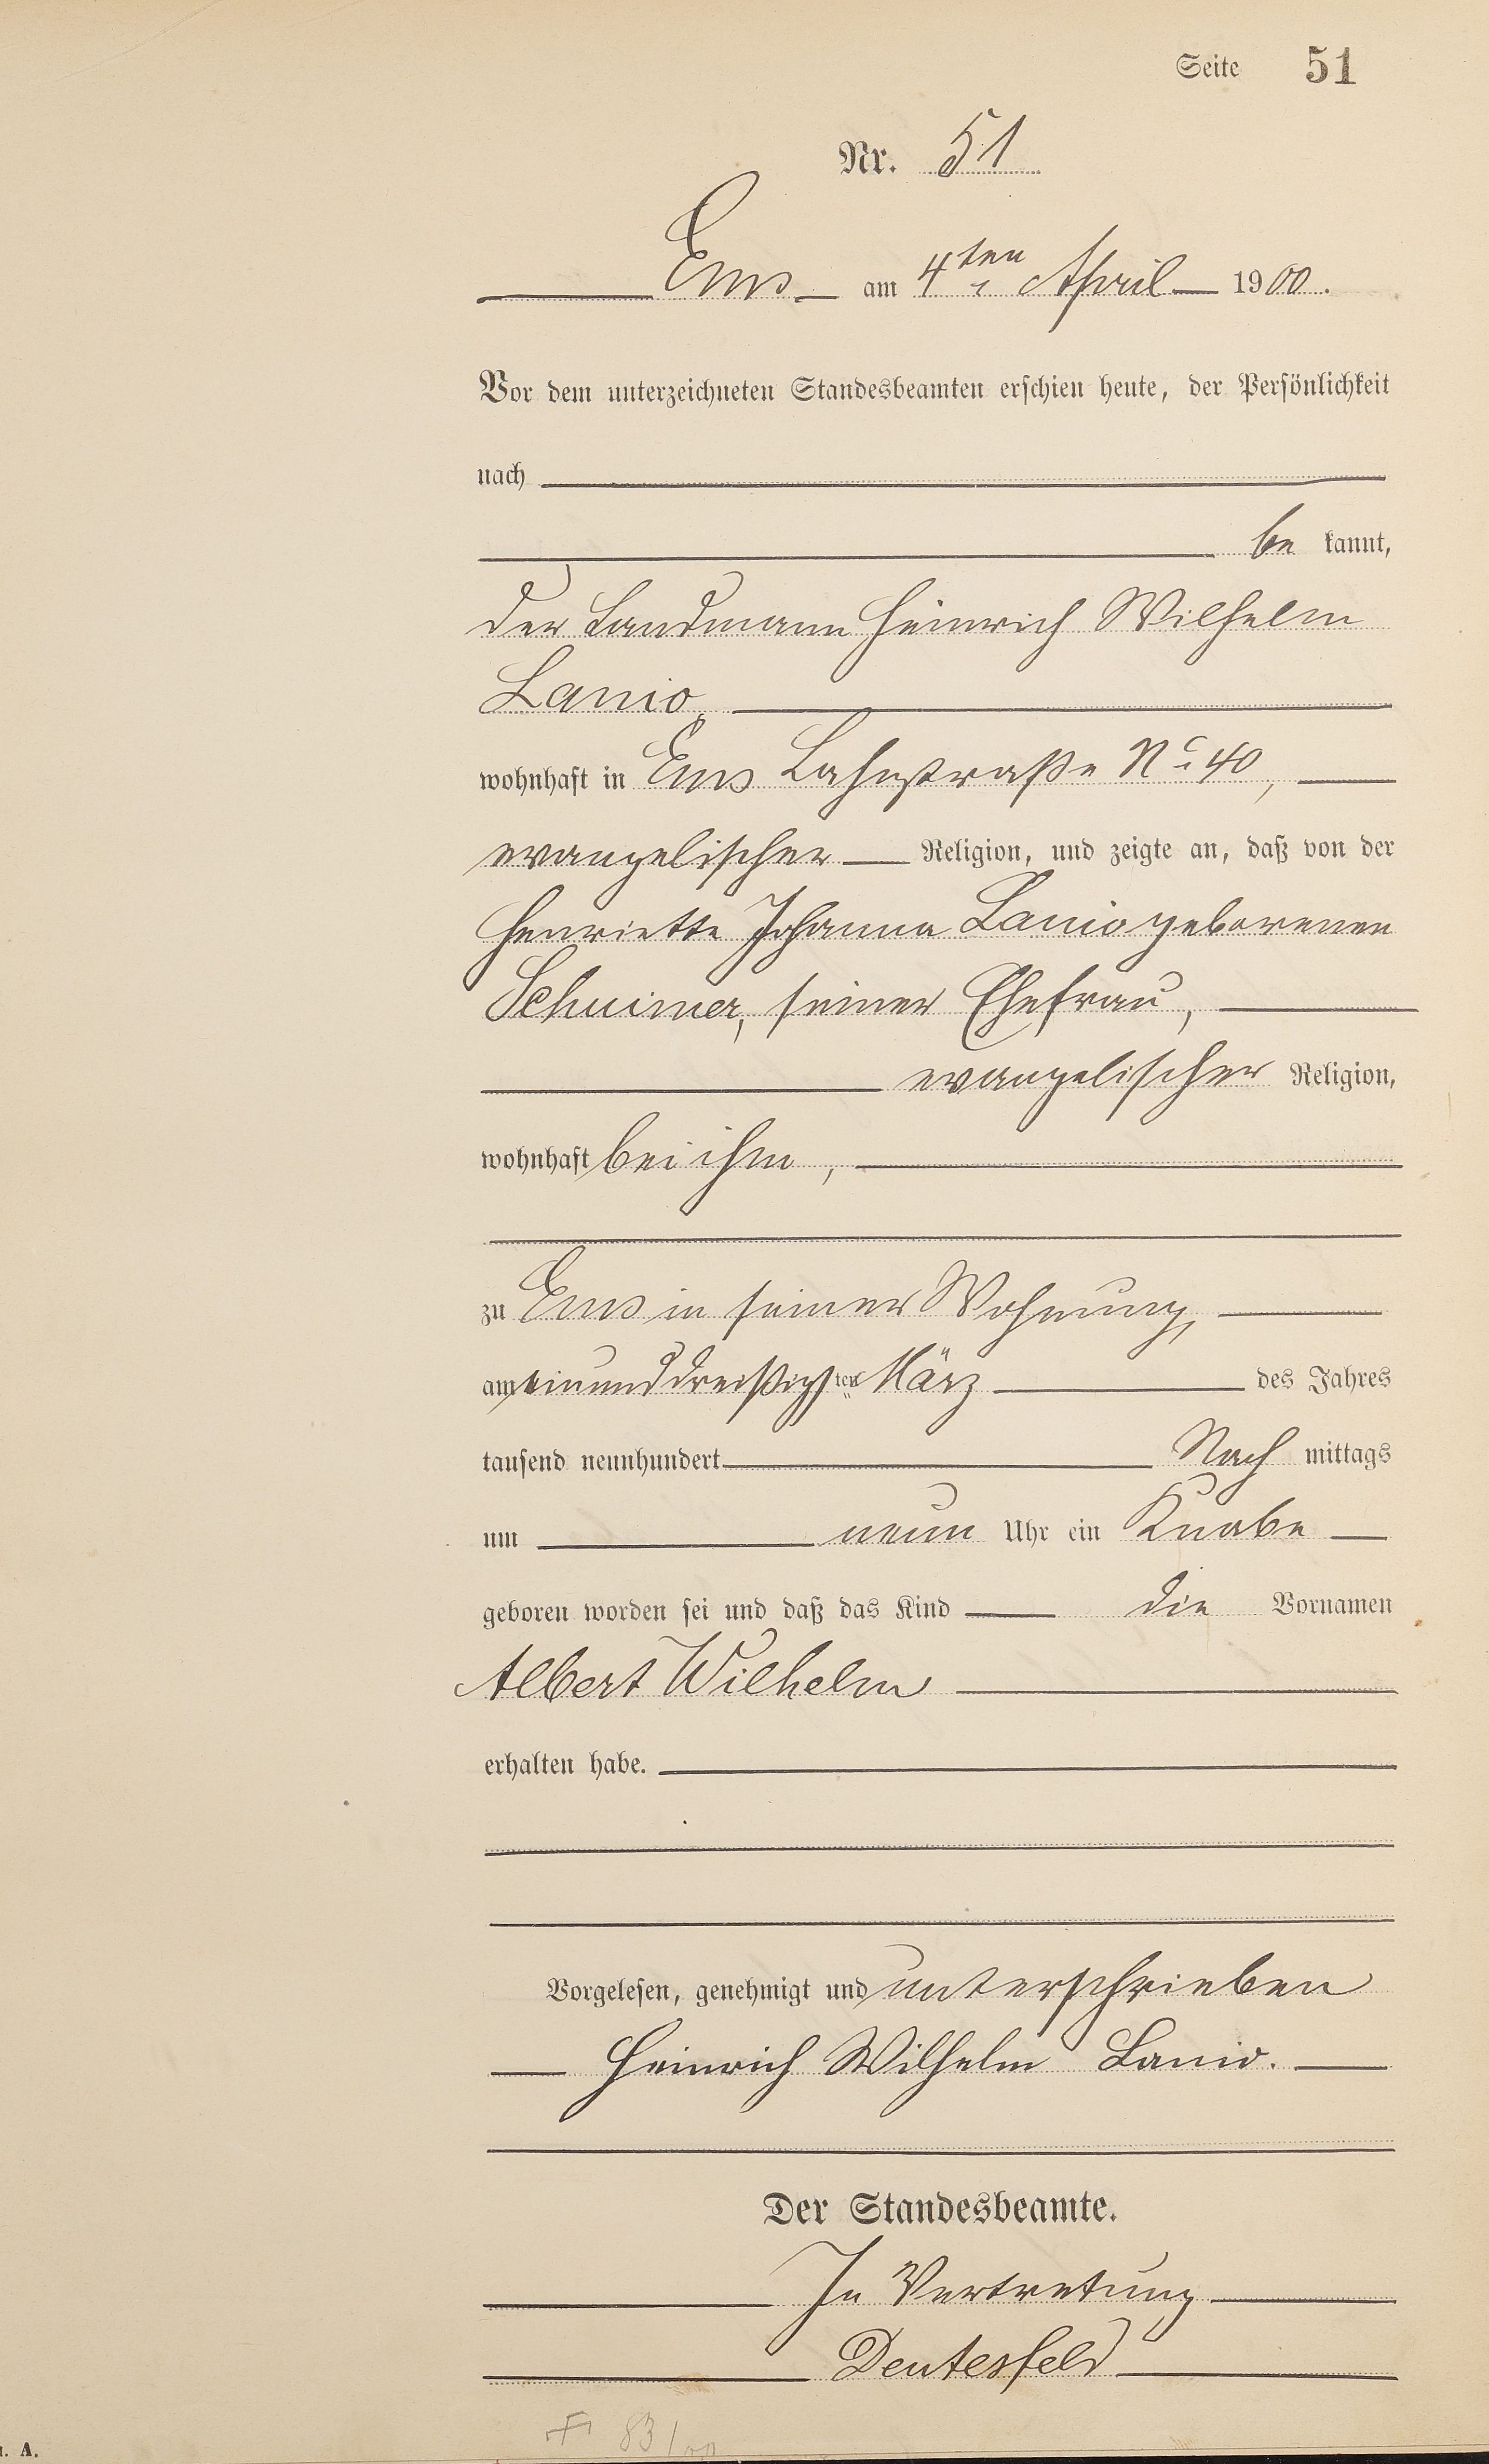 Seite 51
Nr. 51
Ems am 4ten April 1900.
Vor dem unterzeichneten Standesbeamten erschien heute, der Persönlichkeit
nach
be kannt,
der Landmann Heinrich Wilhelm
Lanio,
wohnhaft in Ems Lahnstraße No 40,
evangelischer Religion, und zeigte an, daß von der
Henriette Johanna Lanio geborenen
seiner Ehefrau,
evangelischer Religion,
wohnhaft bei ihm,
zu Ems in seiner Wohnung,
am einunddreißigsten März des Jahres
tausend neunhundert Nach mittags
um neun Uhr ein Knabe
geboren worden sei und daß das Kind die Vornamen
Albert Wilhelm
erhalten habe.
Vorgelesen, genehmigt und unterschrieben
Heinrich Wilhelm Lanio.
Der Standesbeamte.
In Vertretung
Deutesfeld
A.